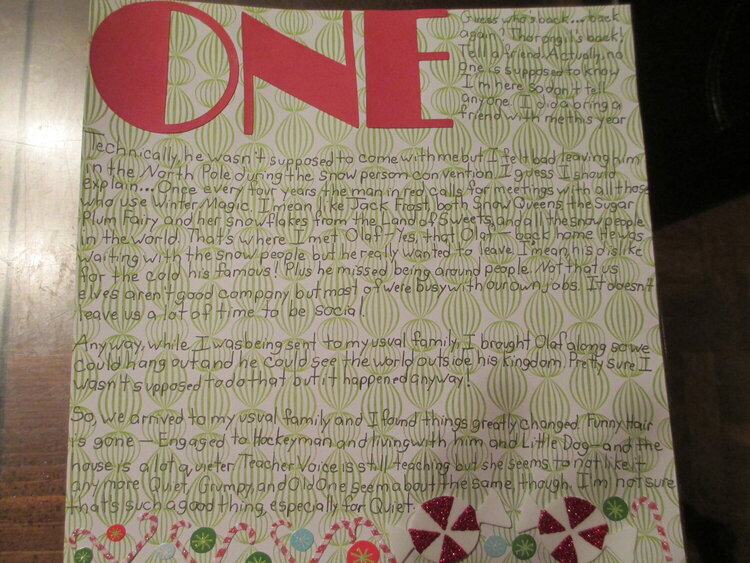 ONE
Guess who's back... back
again? Thorongil's back!
Tell a friend. Actually, no
one is supposed to know
I'm here so don't tell
anyone. I did a bring a
friend with me this year
Technically, he wasn't supposed to come with me but I felt bad leaving him
in the North Pole during the snow person convention. I guess I should
explain... Once every four years the man in red calls for meetings with all those
who use Winter Magic. I mean like Jack Frost, both Snow Queens, the Sugar
Plum Fairy and her snowflakes from the Land of Sweets, and all the snow people
in the world. That's where I met Olaf - Yes, that Olaf - back home. He was
waiting with the snow people but he really wanted to leave. I mean, his dislike
for the cold his famous! Plus he missed being around people. Not that us
elves aren't good company but most of were busy with our own jobs. It doesn't
leave us a lot of time to be social.
Anyway, while I was being sent to my usual family, I brought Olaf along so we
could hang out and he could see the world outside his kingdom. Pretty sure I
wasn't supposed to do that but it happened anyway!
So, we arrived to my usual family and I found things greatly changed. Funny Hair
is gone - Engaged to Hockeyman and living with him and Little Dog - and the
house is a lot quieter. Teacher Voice is still teaching but she seems to not like it
anymore. Quiet, Grumpy, and Old One seem about the same, though. I'm not sure
that's such a good thing, especially for Quiet.